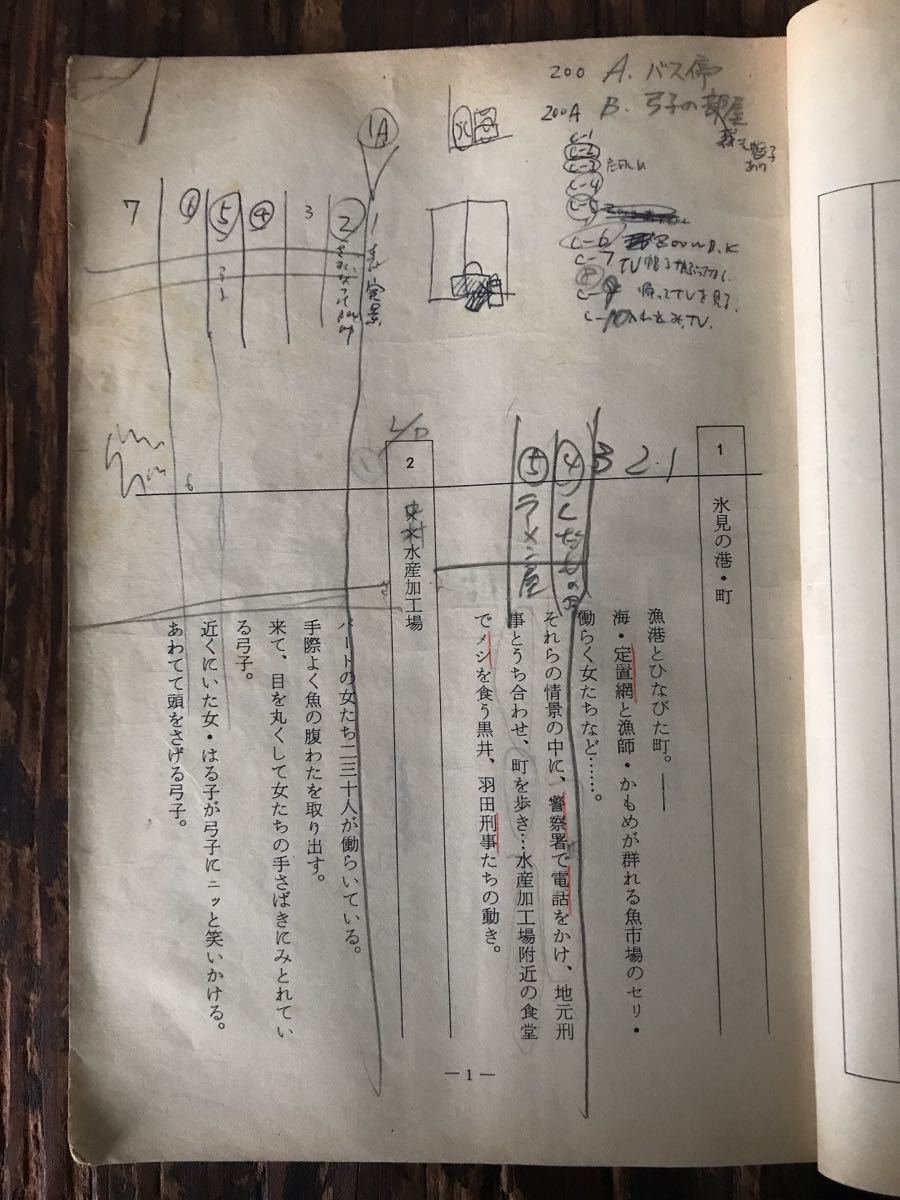 200 A. バス停
200A B. 弓子の部屋
C-1
C-2
C-3
C-4
C-5
C-6 Zoom B.K
C-7
帰ってTVを見る
C-10
1A
1
実景
②
3
④
⑤
7
1
氷見の港・町
1
2
3
④くだもの
⑤ラーメン屋
漁港とひなびた町。――
海・定置網と漁師・かもめが群れる魚市場のセリ・
働らく女たちなど……。
それらの情景の中に、警察署で電話をかけ、地元刑
事とうち合わせ、町を歩き…水産加工場附近の食堂
でメシを食う黒井、羽田刑事たちの動き。
L/D
2
水産加工場
パートの女たち二三十人が働らいている。
手際よく魚の腹わたを取り出す。
来て、目を丸くして女たちの手さばきにみとれてい
る弓子。
近くにいた女・はる子が弓子にニッと笑いかける。
あわてて頭をさげる弓子。
6
― 1 ―